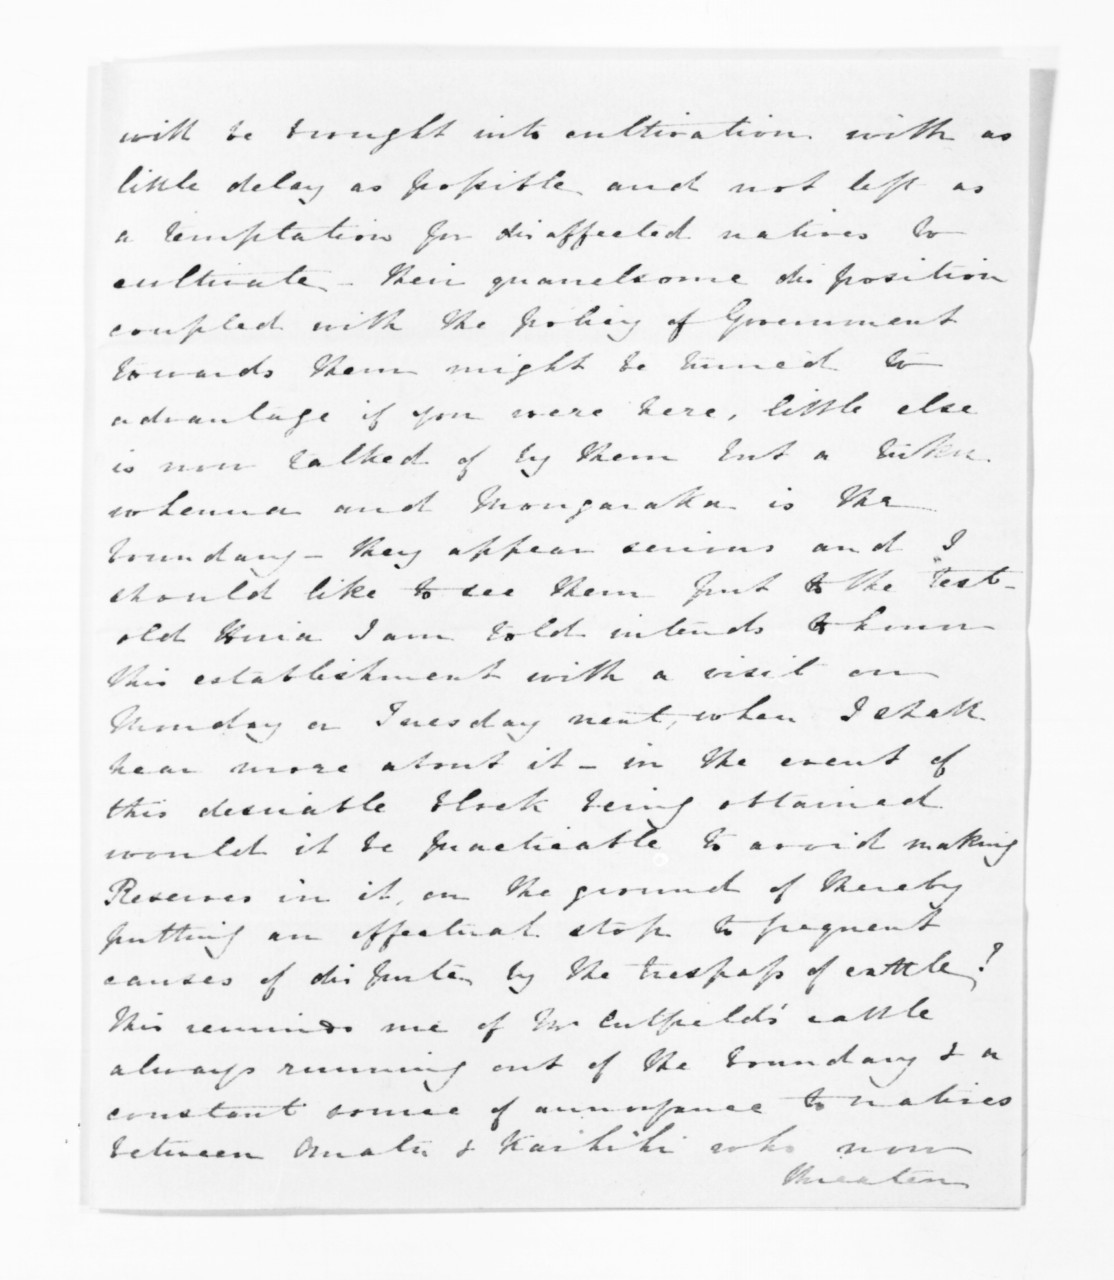 will be brought into cultivation with as
little delay as possible and not left as
a temptation for disaffected natives to
cultivate - their quarrelsome disposition
coupled with the policy of Government
towards them might be turned to
advantage if you were here, little else
is now talked of by them but a
whenua and Mongaraka is the
boundary - they appear serious and I
should like to see them put to the test -
old I am told intends to honor
this establishment with a visit on
Monday or Tuesday next, when I shall
hear more about it - in the event of
this desirable block being obtained
would it be practicable to avoid making
Reserves in it, on the ground of thereby
putting an effectual stop to frequent
causes of dispute by the trespass of cattle?
This reminds me of Mr Cutfield's cattle
always running out of the boundary & a
constant source of annoyance to natives
between Omata & Kaihihi who now
threaten